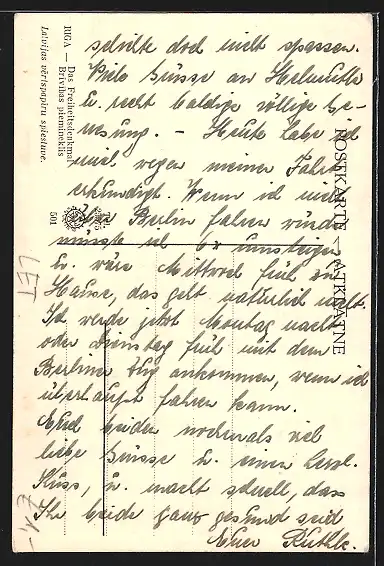 schickte doch nicht spassen.
Viele Grüsse an Helmuth
u. recht baldige völlige Ge-
nesung. - Heute habe ich
mich wegen meiner Fahrt
erkundigt. Wenn ich nicht
über Berlin fahren würde
müsste ich 6x umsteigen
u. wäre Mittwoch früh zu
Hause, das geht natürlich nicht.
Ich werde jetzt Montag nacht
oder Dienstag früh mit dem
Berliner Zug ankommen, wenn ich
überhaupt fahren kann.
Euch beiden nochmals viel
liebe Grüsse u. einen herzl.
Kuss, u. macht schnell, dass
Ihr beide ganz gesund seid
Euer Ruthle.
RIGA — Das Freiheitsdenkmal
Brīvības piemineklis
Latvijas vērtspapīru spiestuve.
501
POSTKARTE - ATKLĀTNE
LET